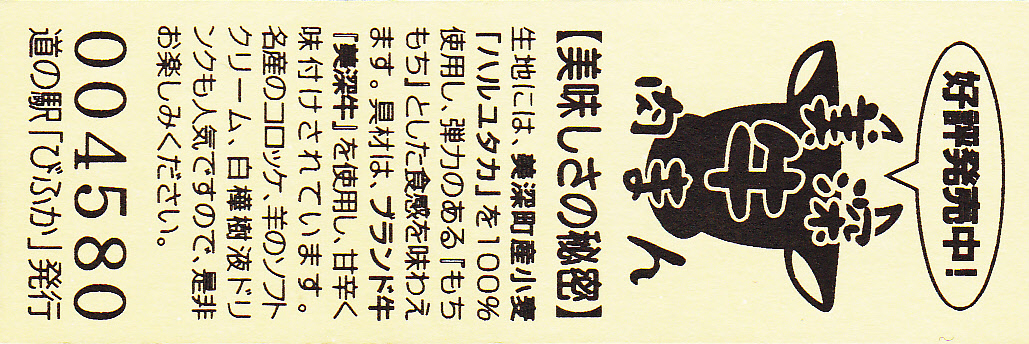 好評発売中!
美深牛
肉まん
【美味しさの秘密】
生地には、美深町産小麦
「ハルユタカ」を100%
使用し、弾力のある『もち
もち』とした食感を味わえ
ます。具材は、ブランド牛
『美深牛』を使用し、甘辛く
味付けされています。
名産のコロッケ、羊のソフト
クリーム、白樺樹液ドリ
ンクも人気ですので、是非
お楽しみください。
004580
道の駅「びふか」発行